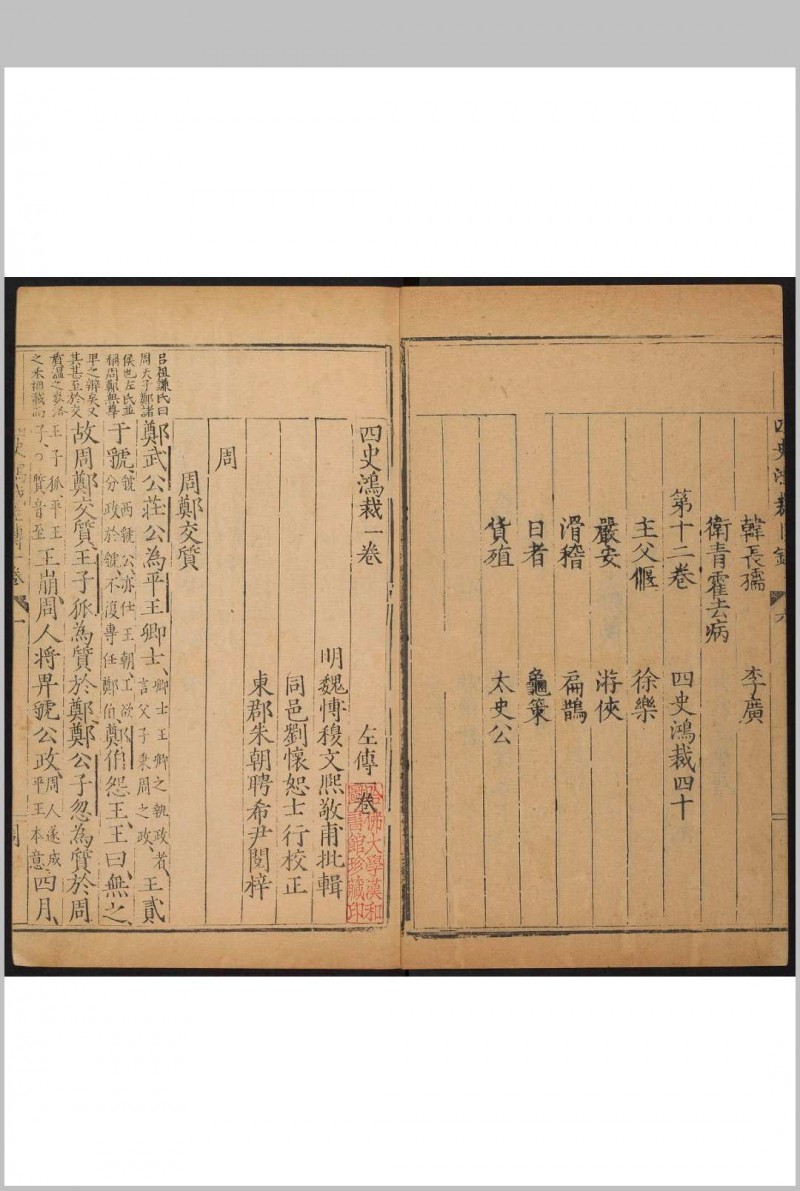 韓長孺 李廣
衛青霍去病
第十二卷 四史鴻裁四十
主父偃 徐樂
嚴安 游俠
滑稽 扁鵲
日者 龜策
貨殖 太史公
四史鴻裁一卷 左傳一卷
明魏博穆文熙敬甫批輯
同邑劉懷恕士行校正
東郡朱朝聘希尹閱梓
周
周鄭交質
鄭武公莊公為平王卿士、卿士王卿之執政者、言父子秉周之政、王貳
于虢、虢西虢公亦仕王朝、王欲分政於虢、不復專任鄭伯、鄭伯怨王、王曰、無之、
故周鄭交質、王子狐為質於鄭、鄭公子忽為質於周
王子狐、平王子、質音至王崩、周人將畀虢公政、周人遂成平王本意、四月、
呂祖謙氏曰
周天子鄭諸
侯也左氏並
稱周鄭無尊
卑之辨矣又
其甚至於交
哈佛大學漢和
圖書館珍藏印